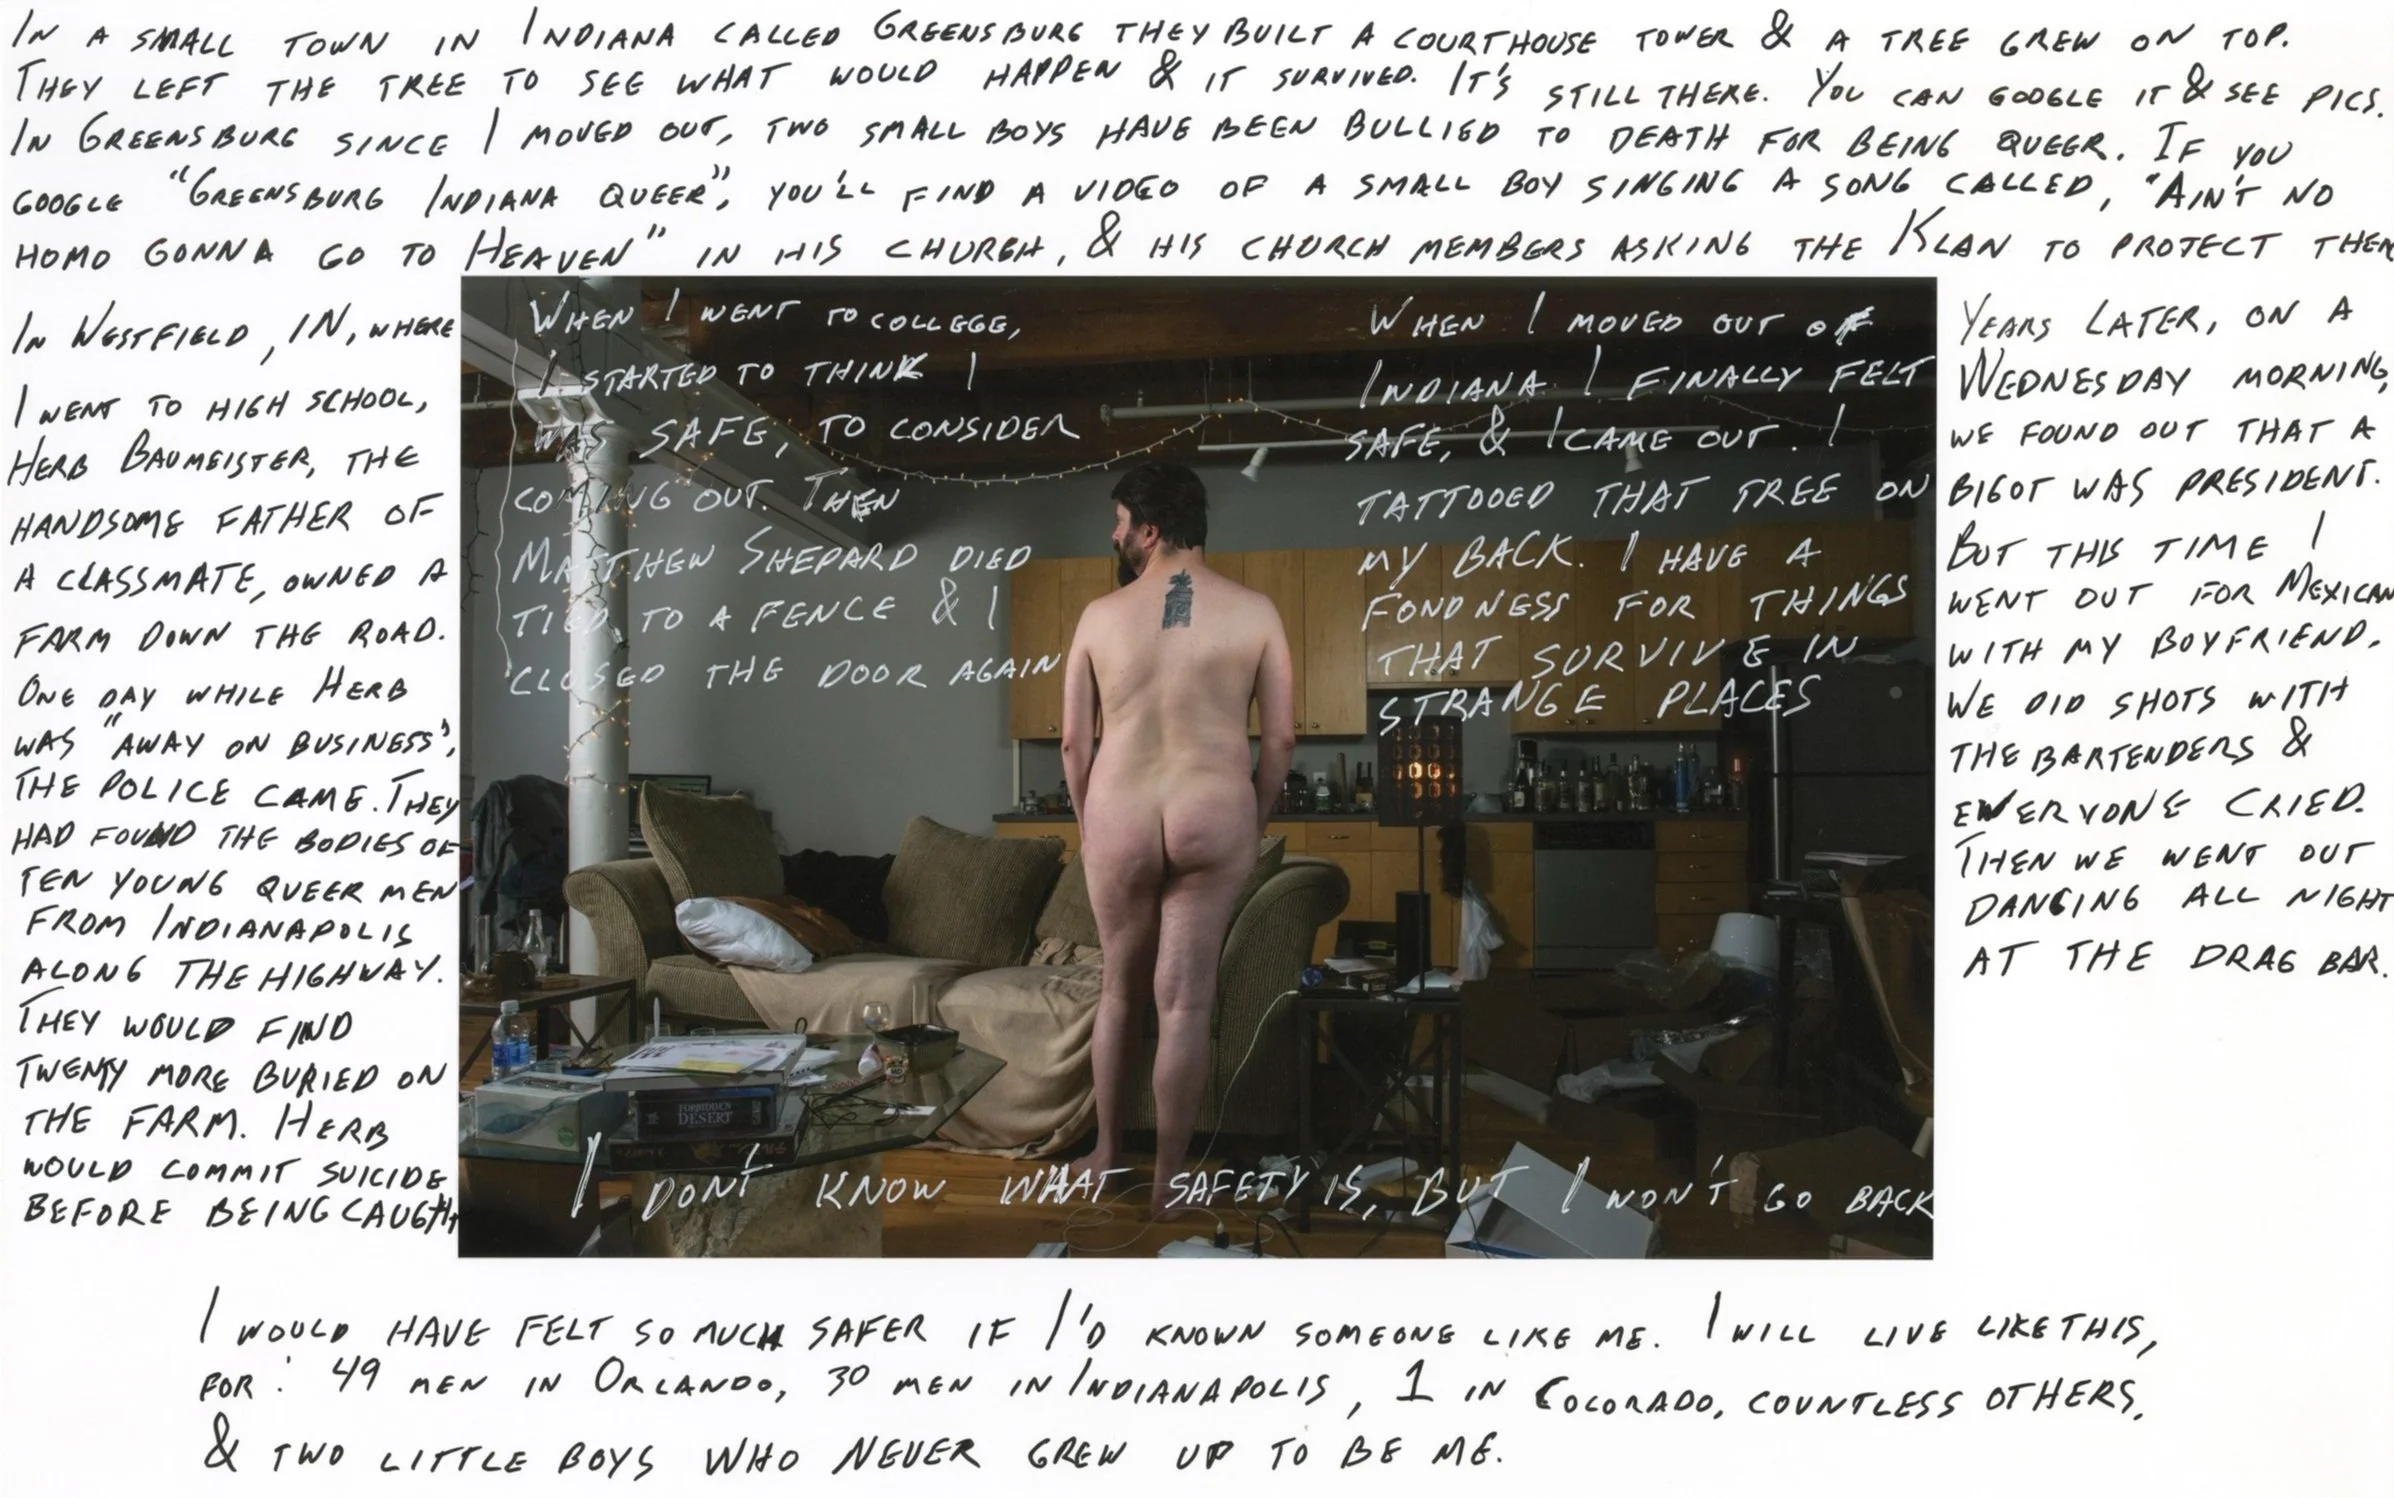 IN A SMALL TOWN IN INDIANA CALLED GREENSBURG THEY BUILT A COURTHOUSE TOWER & A TREE GREW ON TOP.
THEY LEFT THE TREE TO SEE WHAT WOULD HAPPEN & IT SURVIVED. IT'S STILL THERE. YOU CAN GOOGLE IT & SEE PICS.
IN GREENSBURG SINCE I MOVED OUT, TWO SMALL BOYS HAVE BEEN BULLIED TO DEATH FOR BEING QUEER. IF YOU
GOOGLE "GREENSBURG INDIANA QUEER", YOU'LL FIND A VIDEO OF A SMALL BOY SINGING A SONG CALLED, "AIN'T NO
HOMO GONNA GO TO HEAVEN" IN HIS CHURCH, & HIS CHURCH MEMBERS ASKING THE KLAN TO PROTECT THEM
IN WESTFIELD, IN, WHERE
I WENT TO HIGH SCHOOL,
HERB BAUMEISTER, THE
HANDSOME FATHER OF
A CLASSMATE, OWNED A
FARM DOWN THE ROAD.
ONE DAY WHILE HERB
WAS "AWAY ON BUSINESS",
THE POLICE CAME. THEY
HAD FOUND THE BODIES OF
TEN YOUNG QUEER MEN
FROM INDIANAPOLIS
ALONG THE HIGHWAY.
THEY WOULD FIND
TWENTY MORE BURIED ON
THE FARM. HERB
WOULD COMMIT SUICIDE
BEFORE BEING CAUGHT
WHEN I WENT TO COLLEGE,
I STARTED TO THINK I
WAS SAFE, TO CONSIDER
COMING OUT. THEN
MATTHEW SHEPARD DIED
TIED TO A FENCE & I
CLOSED THE DOOR AGAIN
WHEN I MOVED OUT OF
INDIANA I FINALLY FELT
SAFE, & I CAME OUT. I
TATTOOED THAT TREE ON
MY BACK. I HAVE A
FONDNESS FOR THINGS
THAT SURVIVE IN
STRANGE PLACES
FORBIDDEN
DESERT
I DON'T KNOW WHAT SAFETY IS, BUT I WON'T GO BACK
YEARS LATER, ON A
WEDNESDAY MORNING,
WE FOUND OUT THAT A
BIGOT WAS PRESIDENT.
BUT THIS TIME I
WENT OUT FOR MEXICAN
WITH MY BOYFRIEND.
WE DID SHOTS WITH
THE BARTENDERS &
EVERYONE CRIED.
THEN WE WENT OUT
DANCING ALL NIGHT
AT THE DRAG BAR.
I WOULD HAVE FELT SO MUCH SAFER IF I'D KNOWN SOMEONE LIKE ME. I WILL LIVE LIKE THIS,
FOR: 49 MEN IN ORLANDO, 30 MEN IN INDIANAPOLIS, 1 IN COLORADO, COUNTLESS OTHERS,
& TWO LITTLE BOYS WHO NEVER GREW UP TO BE ME.